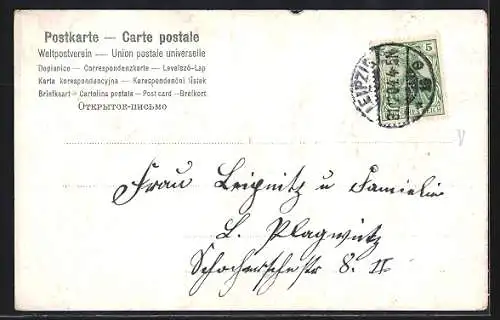 Postkarte — Carte postale
Weltpostverein — Union postale universelle
Dopisnice — Correspondenzkarte — Levelező-Lap
Karta korespondencyjna — Korespondenční lístek
Briefkaart — Cartolina postale — Post card — Brefkort
Открытое-письмо
LEIPZIG
5
Frau Leipnitz u Familie
L. Plagwitz
Schocherschestr 8. II